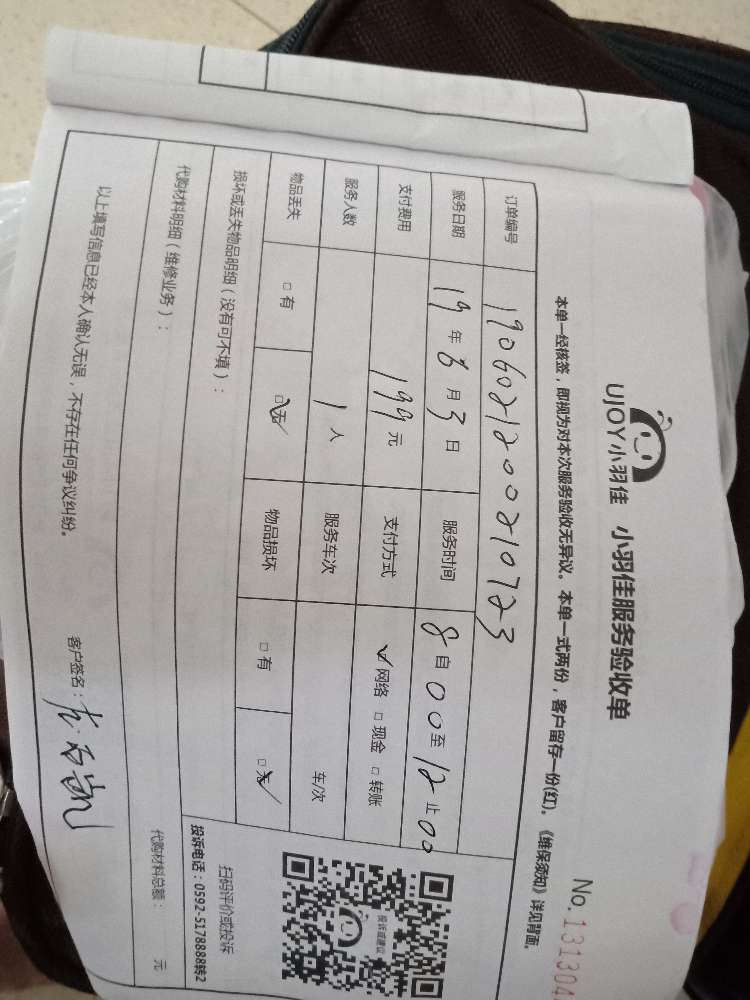 UJOY小羽佳 小羽佳服务验收单
No.131304
本单一经核签，即视为对本次服务验收无异议。本单一式两份，客户留存一份(红)。《维保须知》详见背面。
订单编号 1906021200210723
服务日期 19年6月3日 服务时间 8自00至12止00
支付费用 199元 支付方式 ☑网络 □现金 □转账
服务人数 1人 服务车次 车/次
物品丢失 □有 ☑无 物品损坏 □有 ☑无
损坏或丢失物品明细（没有可不填）：
代购材料明细（维修业务）：
代购材料总额： 元
以上填写信息已经本人确认无误，不存在任何争议纠纷。
客户签名：
投诉或建议
扫码评价或投诉
投诉电话：0592-5178888转2